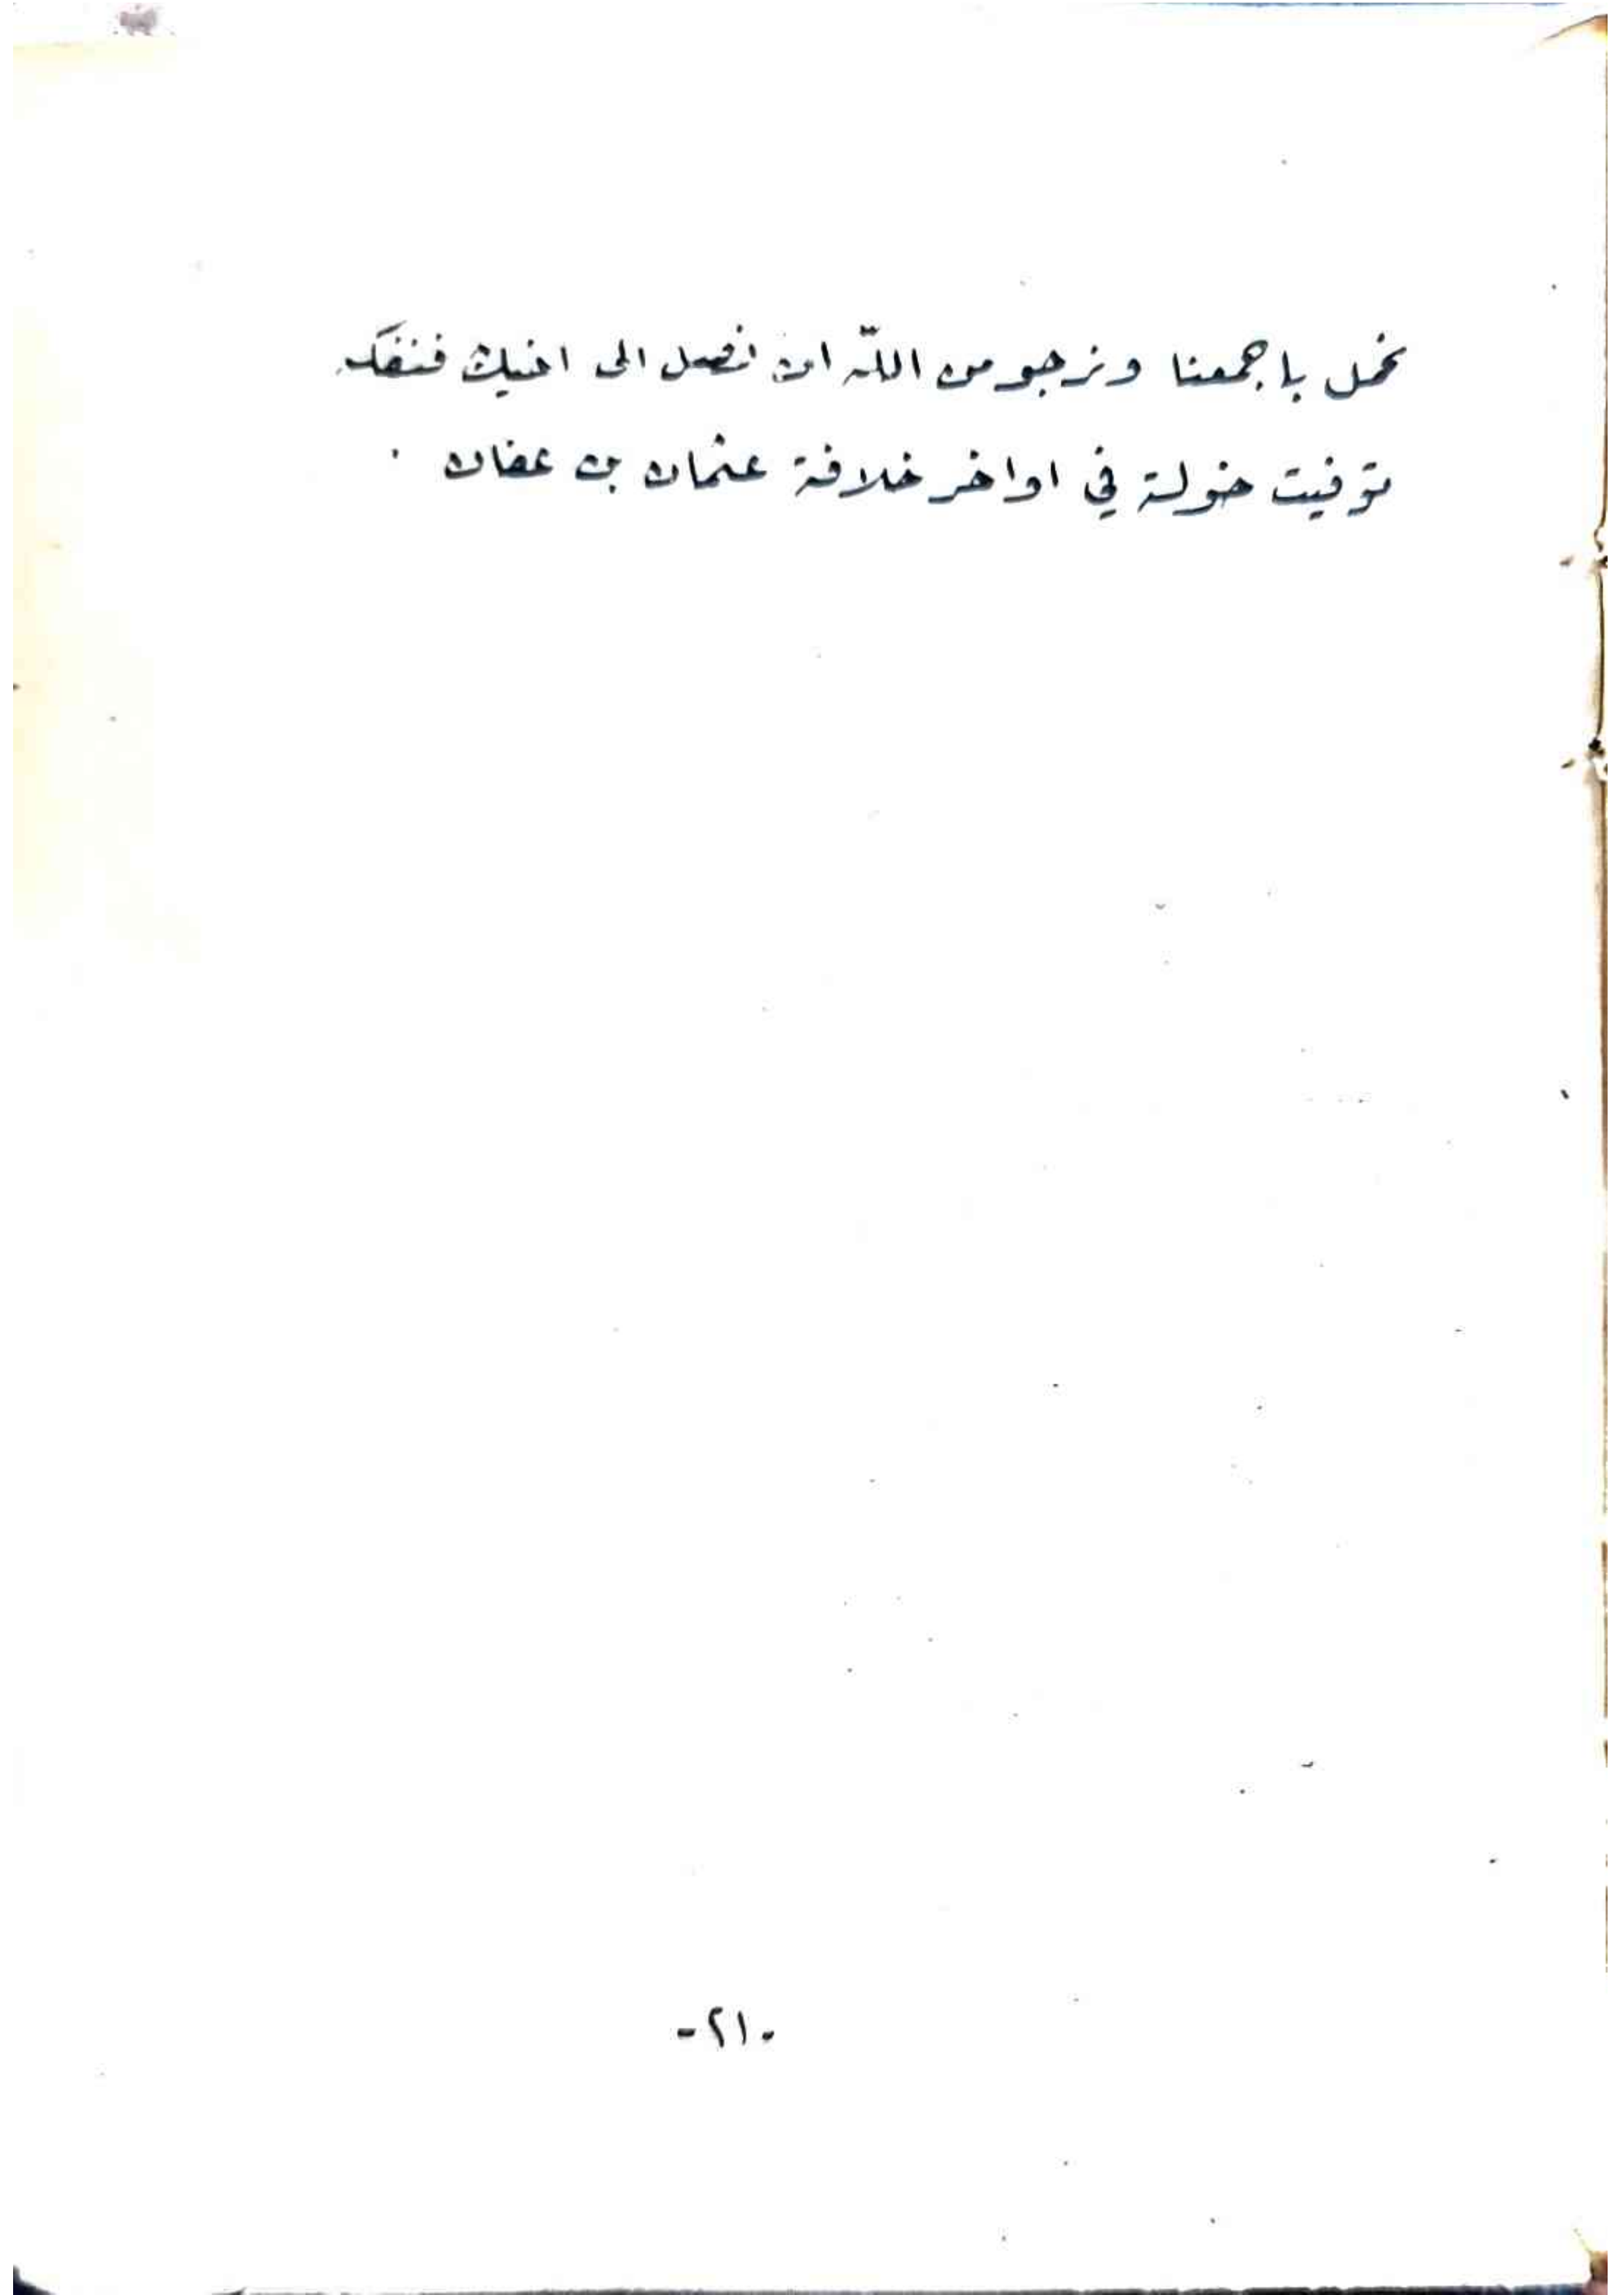 نحمل باجمعنا ونرجو من اللّه ان نصل الى اخيك فنفكه
توفيت خولة في اواخر خلافة عثمان بن عفان .
-٢١-